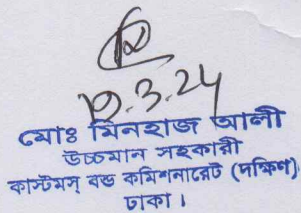 ১৩.3.24
মোঃ মিনহাজ আলী
উচ্চমান সহকারী
কাস্টমস্ বন্ড কমিশনারেট (দক্ষিণ)
ঢাকা।